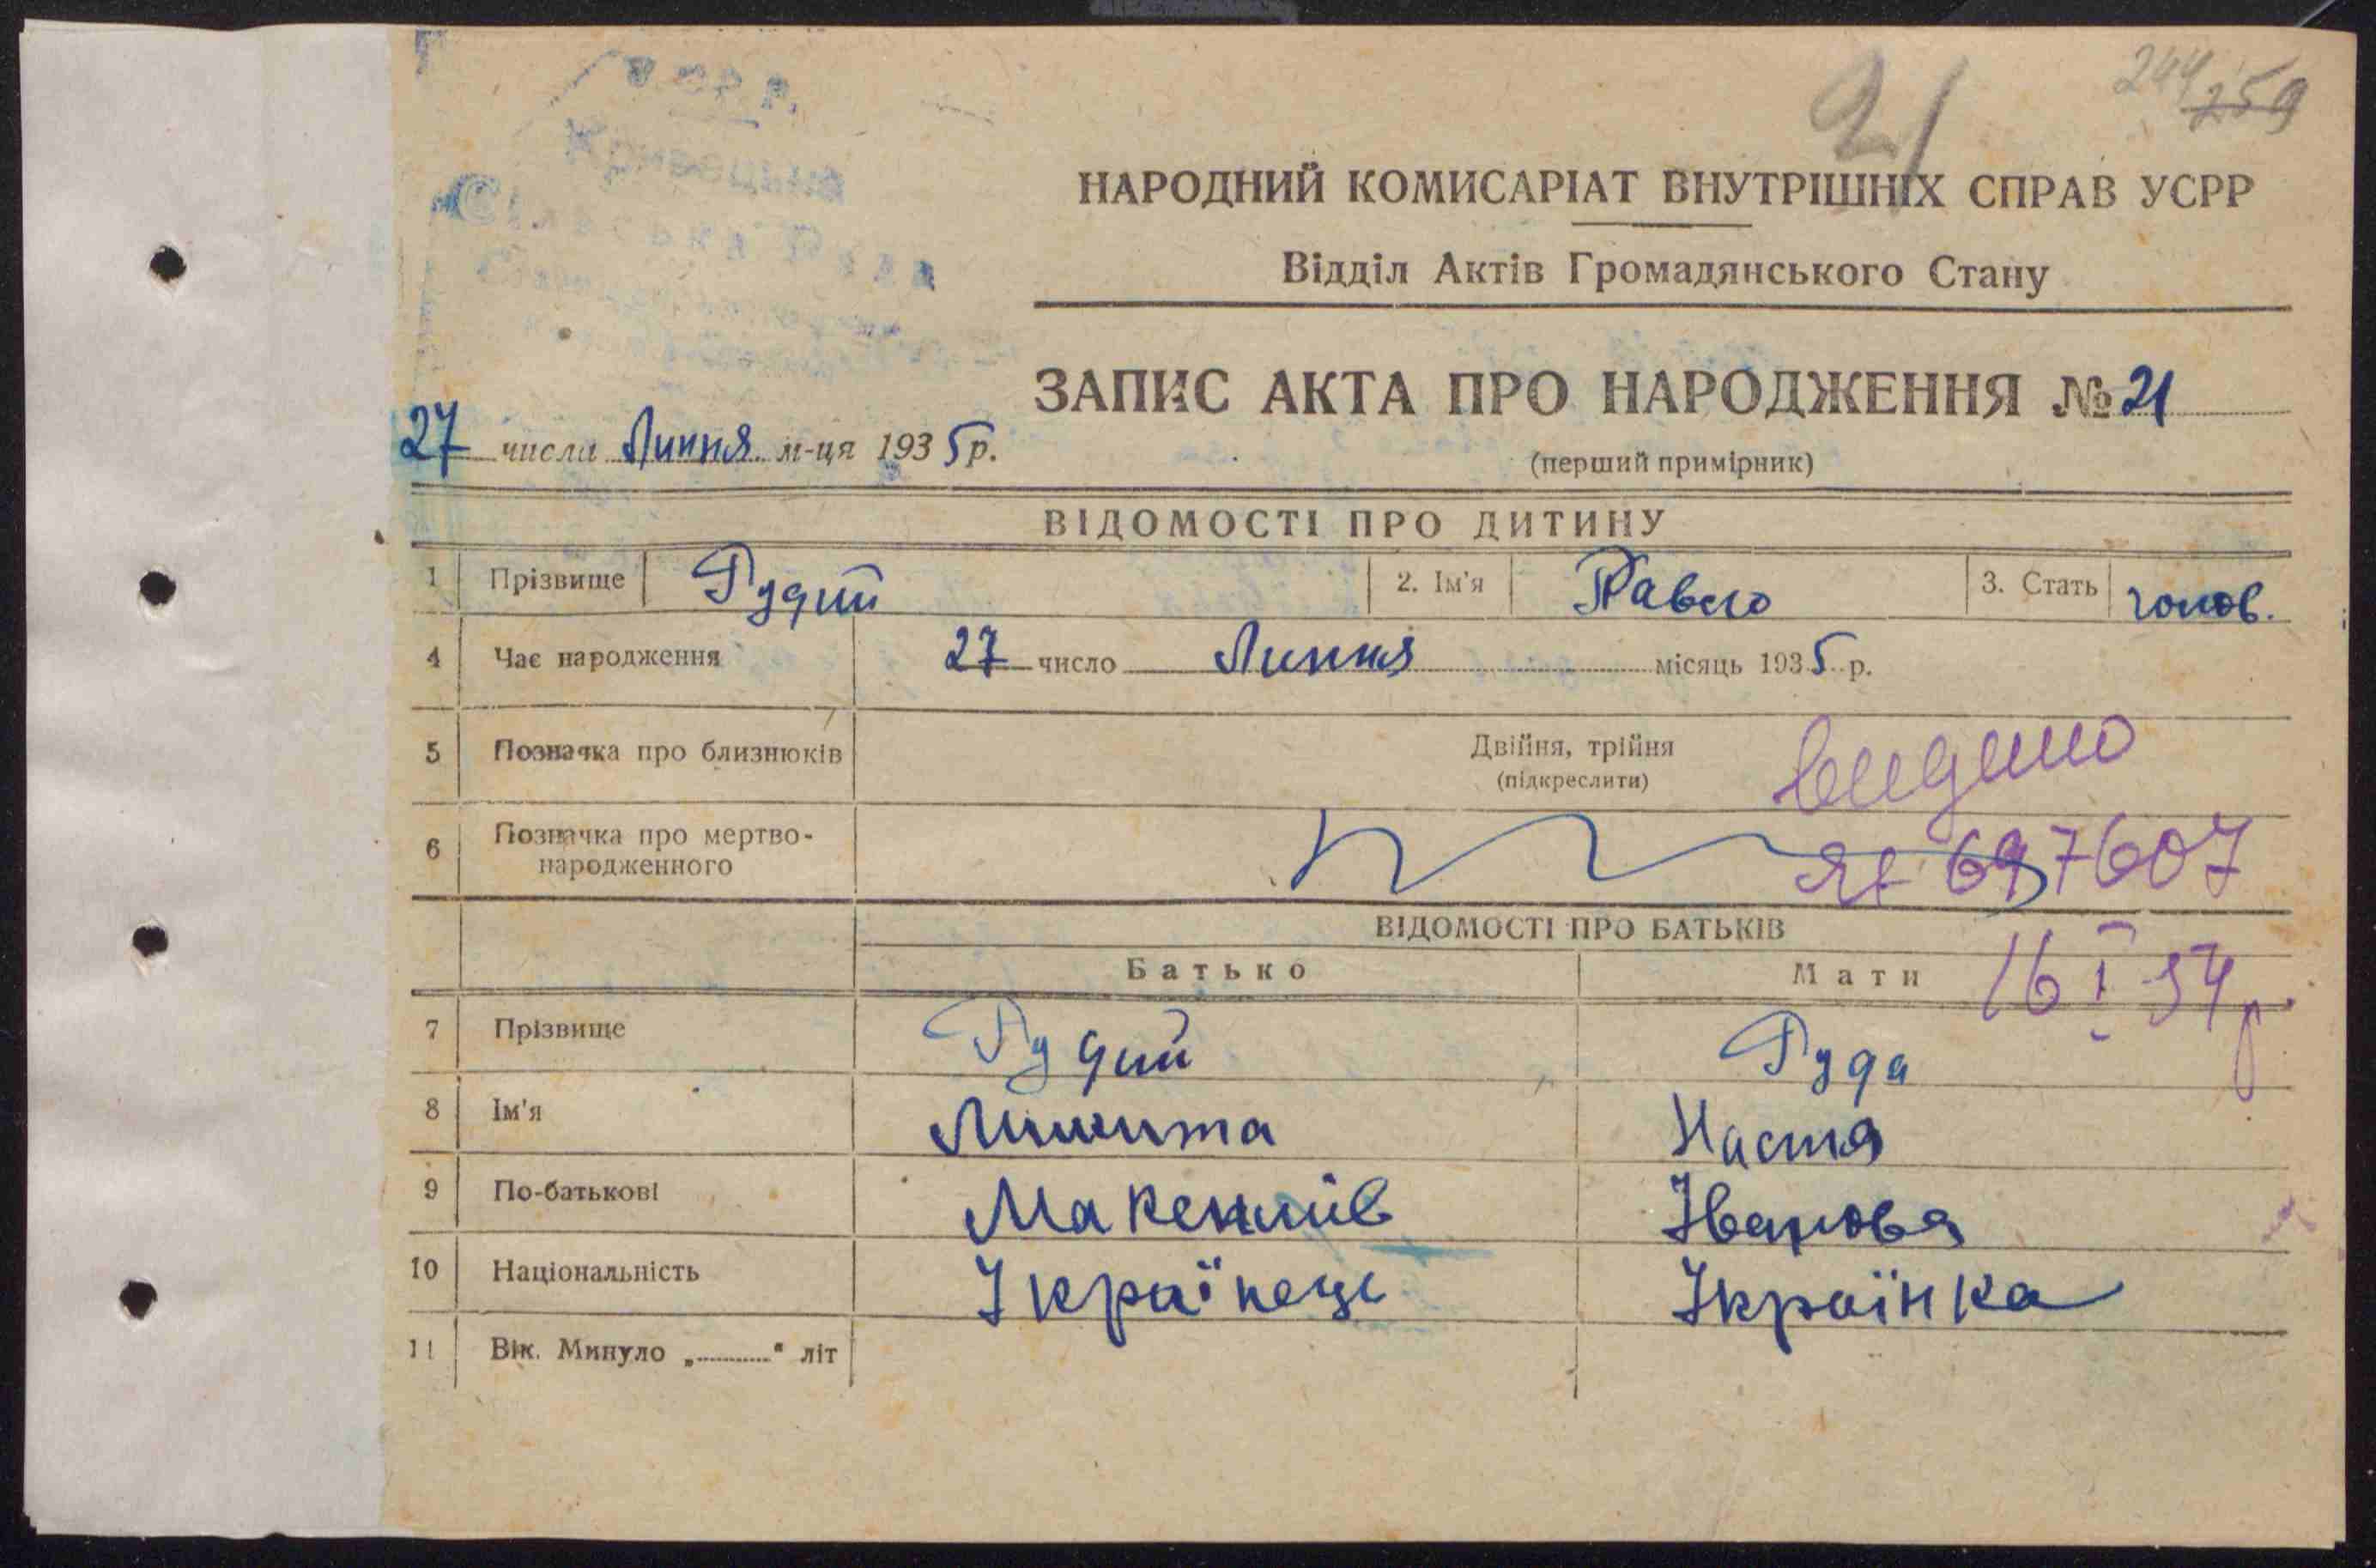 244 259
21
У С Р Р.
Сільська Рада
НАРОДНИЙ КОМИСАРІАТ ВНУТРІШНІХ СПРАВ УСРР
Відділ Актів Громадянського Стану
ЗАПИС АКТА ПРО НАРОДЖЕННЯ № 21
27 числа Липня м-ця 1935 р.
(перший примірник)
ВІДОМОСТІ ПРО ДИТИНУ
1 Прізвище Рудий 2. Ім'я Павло 3. Стать голов.
4 Час народження 27 число Липня місяць 1935 р.
5 Позначка про близнюків Двійня, трійня
(підкреслити)
видано
6 Позначка про мертво-
народженного
697607
ВІДОМОСТІ ПРО БАТЬКІВ
Батько Мати
16 I 54 р
7 Прізвище Рудий Руда
8 Ім'я Микита Настя
9 По-батькові Іванова
10 Національність Українець Українка
11 Вік. Минуло „ “ літ